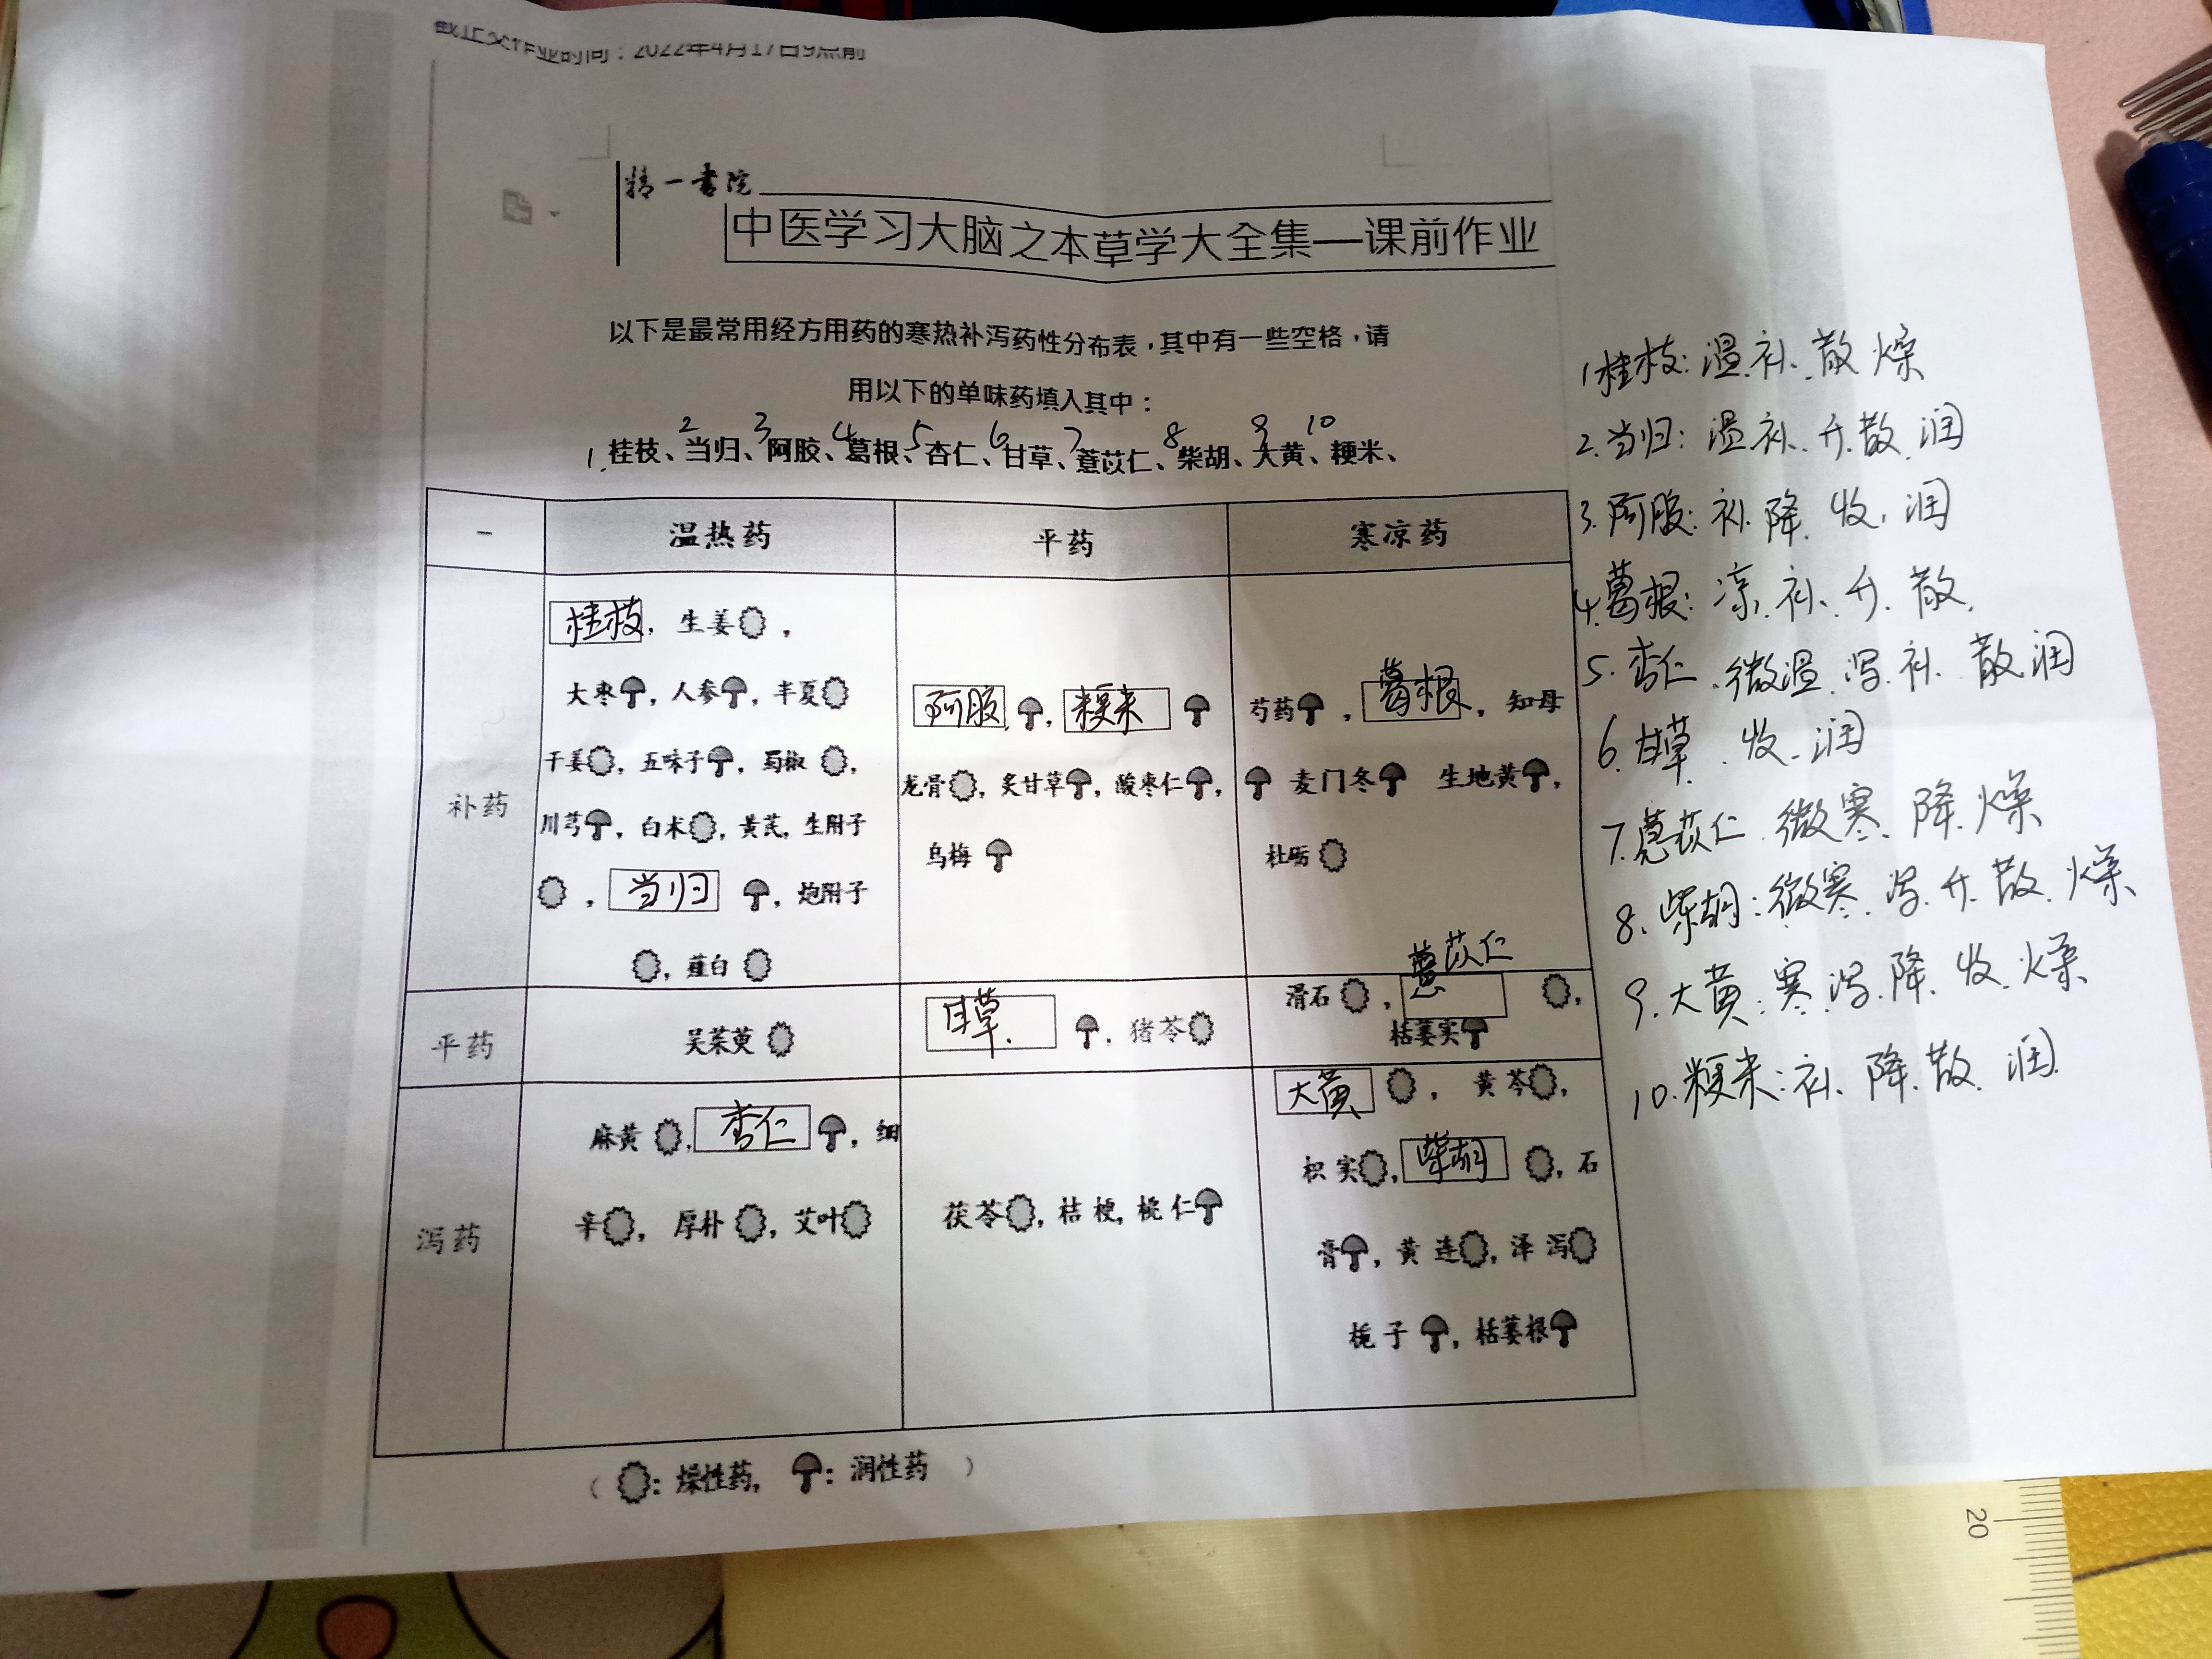 截止交作业时间：2022年4月17日9点前
精一书院
中医学习大脑之本草学大全集—课前作业
以下是最常用经方用药的寒热补泻药性分布表，其中有一些空格，请
用以下的单味药填入其中：
2 3 4 5 6 7 8 9 10
1.桂枝、当归、阿胶、葛根、杏仁、甘草、薏苡仁、柴胡、大黄、粳米、
一 温热药 平药 寒凉药
补药
桂枝，生姜，
大枣，人参，半夏
干姜，五味子，蜀椒，
川芎，白术，黄芪，生附子
，当归，炮附子
，薤白
阿胶，粳米
龙骨，炙甘草，酸枣仁，
乌梅
芍药，葛根，知母
麦门冬 生地黄，
牡蛎
平药
吴茱萸
甘草.，猪苓
薏苡仁
滑石，薏，
栝蒌实
泻药
麻黄，杏仁，细
辛，厚朴，艾叶
茯苓，桔梗，桃仁
大黄，黄芩，
枳实，柴胡，石
膏，黄连，泽泻
栀子，栝蒌根
（：燥性药，：润性药）
1.桂枝：温.补.散燥
2.当归：温补.升散.润
3.阿胶：补.降.收.润
4.葛根：凉.补.升.散.
5.杏仁.微温.泻.补.散润
6.甘草.收.润
7.薏苡仁 微寒.降.燥
8.柴胡：微寒.泻.升.散.燥
9.大黄：寒.泻.降.收.燥
10.粳米：补.降.散.润.
20